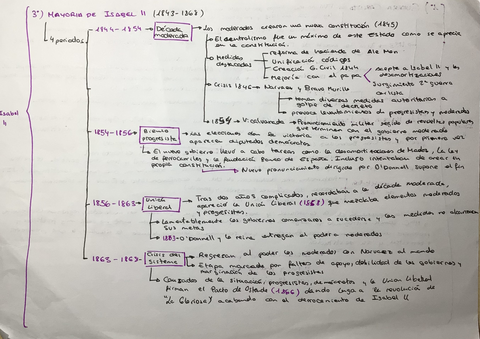 3º) MAYORIA DE ISABEL II (1843-1868)
4 periodos
Isabel
II
1844-1854
Década
moderada
Los moderados crearon una nueva constitución (1845)
El centralismo fue un máximo de este estado como se aprecia
en la constitución.
Medidas
destacadas
reforma de Hacienda de Ale Mon
Unificación códigos
Creación G. Civil 1844
Mejoría con el papa
acepta a Isabel II y las
desamortizaciones
Surgimiento 2ª guerra
carlista
Crisis 1846
Narváez y Bravo Murillo
toman diversas medidas autoritarias a
golpe de decreto
provoca levantamientos de progresistas y moderados
1854
Vicalvarada
Pronunciamiento militar seguido de revueltas populares
que terminan con el gobierno moderado
1854-1856
Bienio
progresista
Las elecciones dan la victoria a los progresistas y por primera vez
aparecen diputados demócratas
El nuevo gobierno llevó a cabo tareas como la desamortización de Madoz, la ley
de ferrocarriles y la fundación Banco de España. Incluso intentaban de crear su
propia constitución.
Nuevo pronunciamiento dirigido por O'Donnell supone el fin
1856-1863
Unión
liberal
Tras dos años complicados, recordaban a la década moderada,
apareció la Unión Liberal (1858) que mezclaba elementos moderados
y progresistas.
Lamentablemente los gobiernos comenzaron a sucederse y las medidas no alcanzaron
sus metas
1863-O'Donnell y la reina entregan el poder a moderados
1863-1868
Crisis del
sistema
Regresan al poder los moderados con Narváez al mando
Etapa marcada por faltas de apoyo, debilidad de los gobiernos y
marginación de los progresistas
Cansados de la situación, progresistas, demócratas y la Unión Liberal
firman el Pacto de Ostende (1866) dando lugar a la revolución de
"La Gloriosa" acabando con el derrocamiento de Isabel II